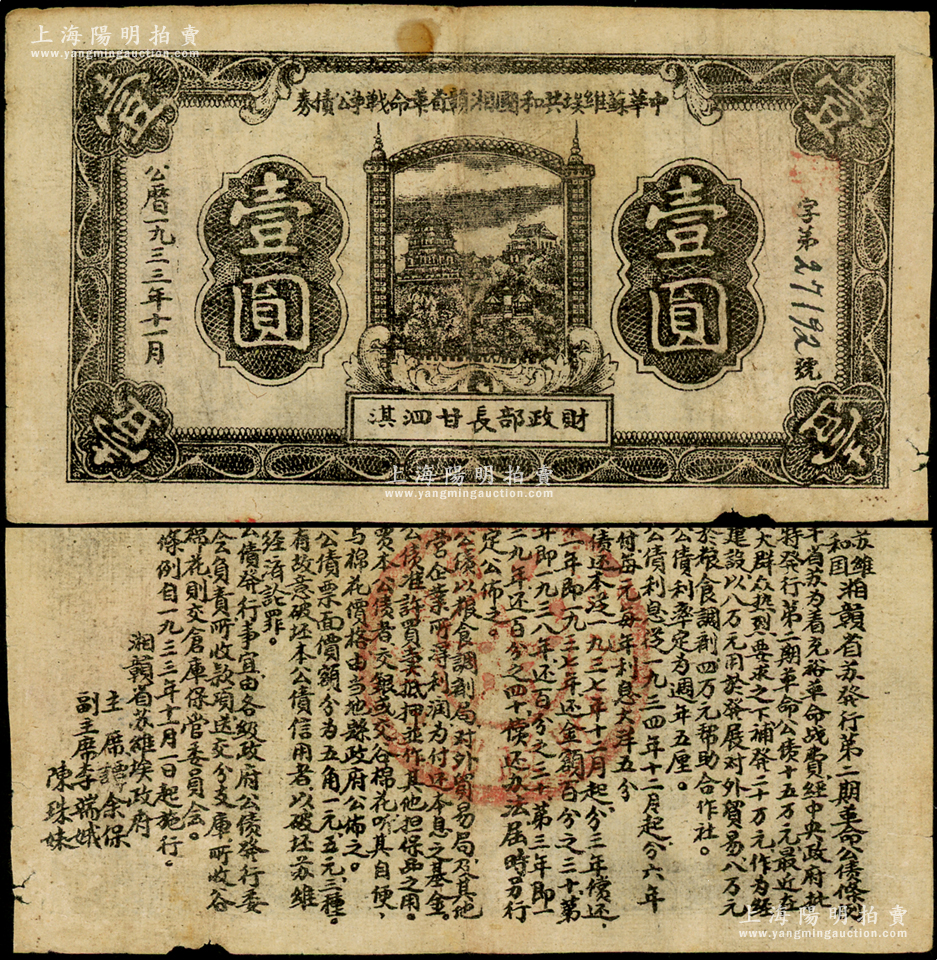 上海陽明拍賣
www.yangmingauction.com
壹
壹
中華蘇維埃共和國湘贛省革命戰争公債券
字第27192號
壹圓
壹圓
公曆一九三三年十一月
財政部長甘泗淇
壹
壹
上海陽明拍賣
www.yangmingauction.com
蘇維
和国湘贛省苏發行第二期革命公債條
省苏为着充裕革命战費經中央政府批
特發行第二期革命公債十五万元最近在
大群众热烈要求之下補發二十万元作为經
建設以八万元用於發展对外貿易八万元
於粮食調剂四万元帮助合作社。
公債利率定为週年五厘。
公債利息從一九三四年十二月起分六年
付每元每年利息大洋五分
債还本從一九三七年十二月起分三年償还,
一年即一九三七年还金額百分之三十,第
年即一九三八年,还百分之三十第三年即一
三九年还百分之四十償还办法屆時另行
定公佈之。
公債以粮食調剂局对外貿易局及其他
营企業所得利润为付还本息之基金。
公債准許買卖抵押並作其他担保品之用。
買本公債者交銀或交谷棉花听其自便,
与棉花價格由当地縣政府公佈之。
公債票面價額分为五角一元五元三種。
有故意破坏本公債信用者,以破坏苏維
經済論罪。
公債發行事宜由各級政府公債發行委
会負責所收款項送交分支庫,所收谷
棉花則交倉庫保管委員会。
條例自一九三三年十一月一日起施行。
湘贛省苏維埃政府
主席譚余保
副主席李端娥
陳珠妹
上海陽明拍賣
www.yangmingauction.com